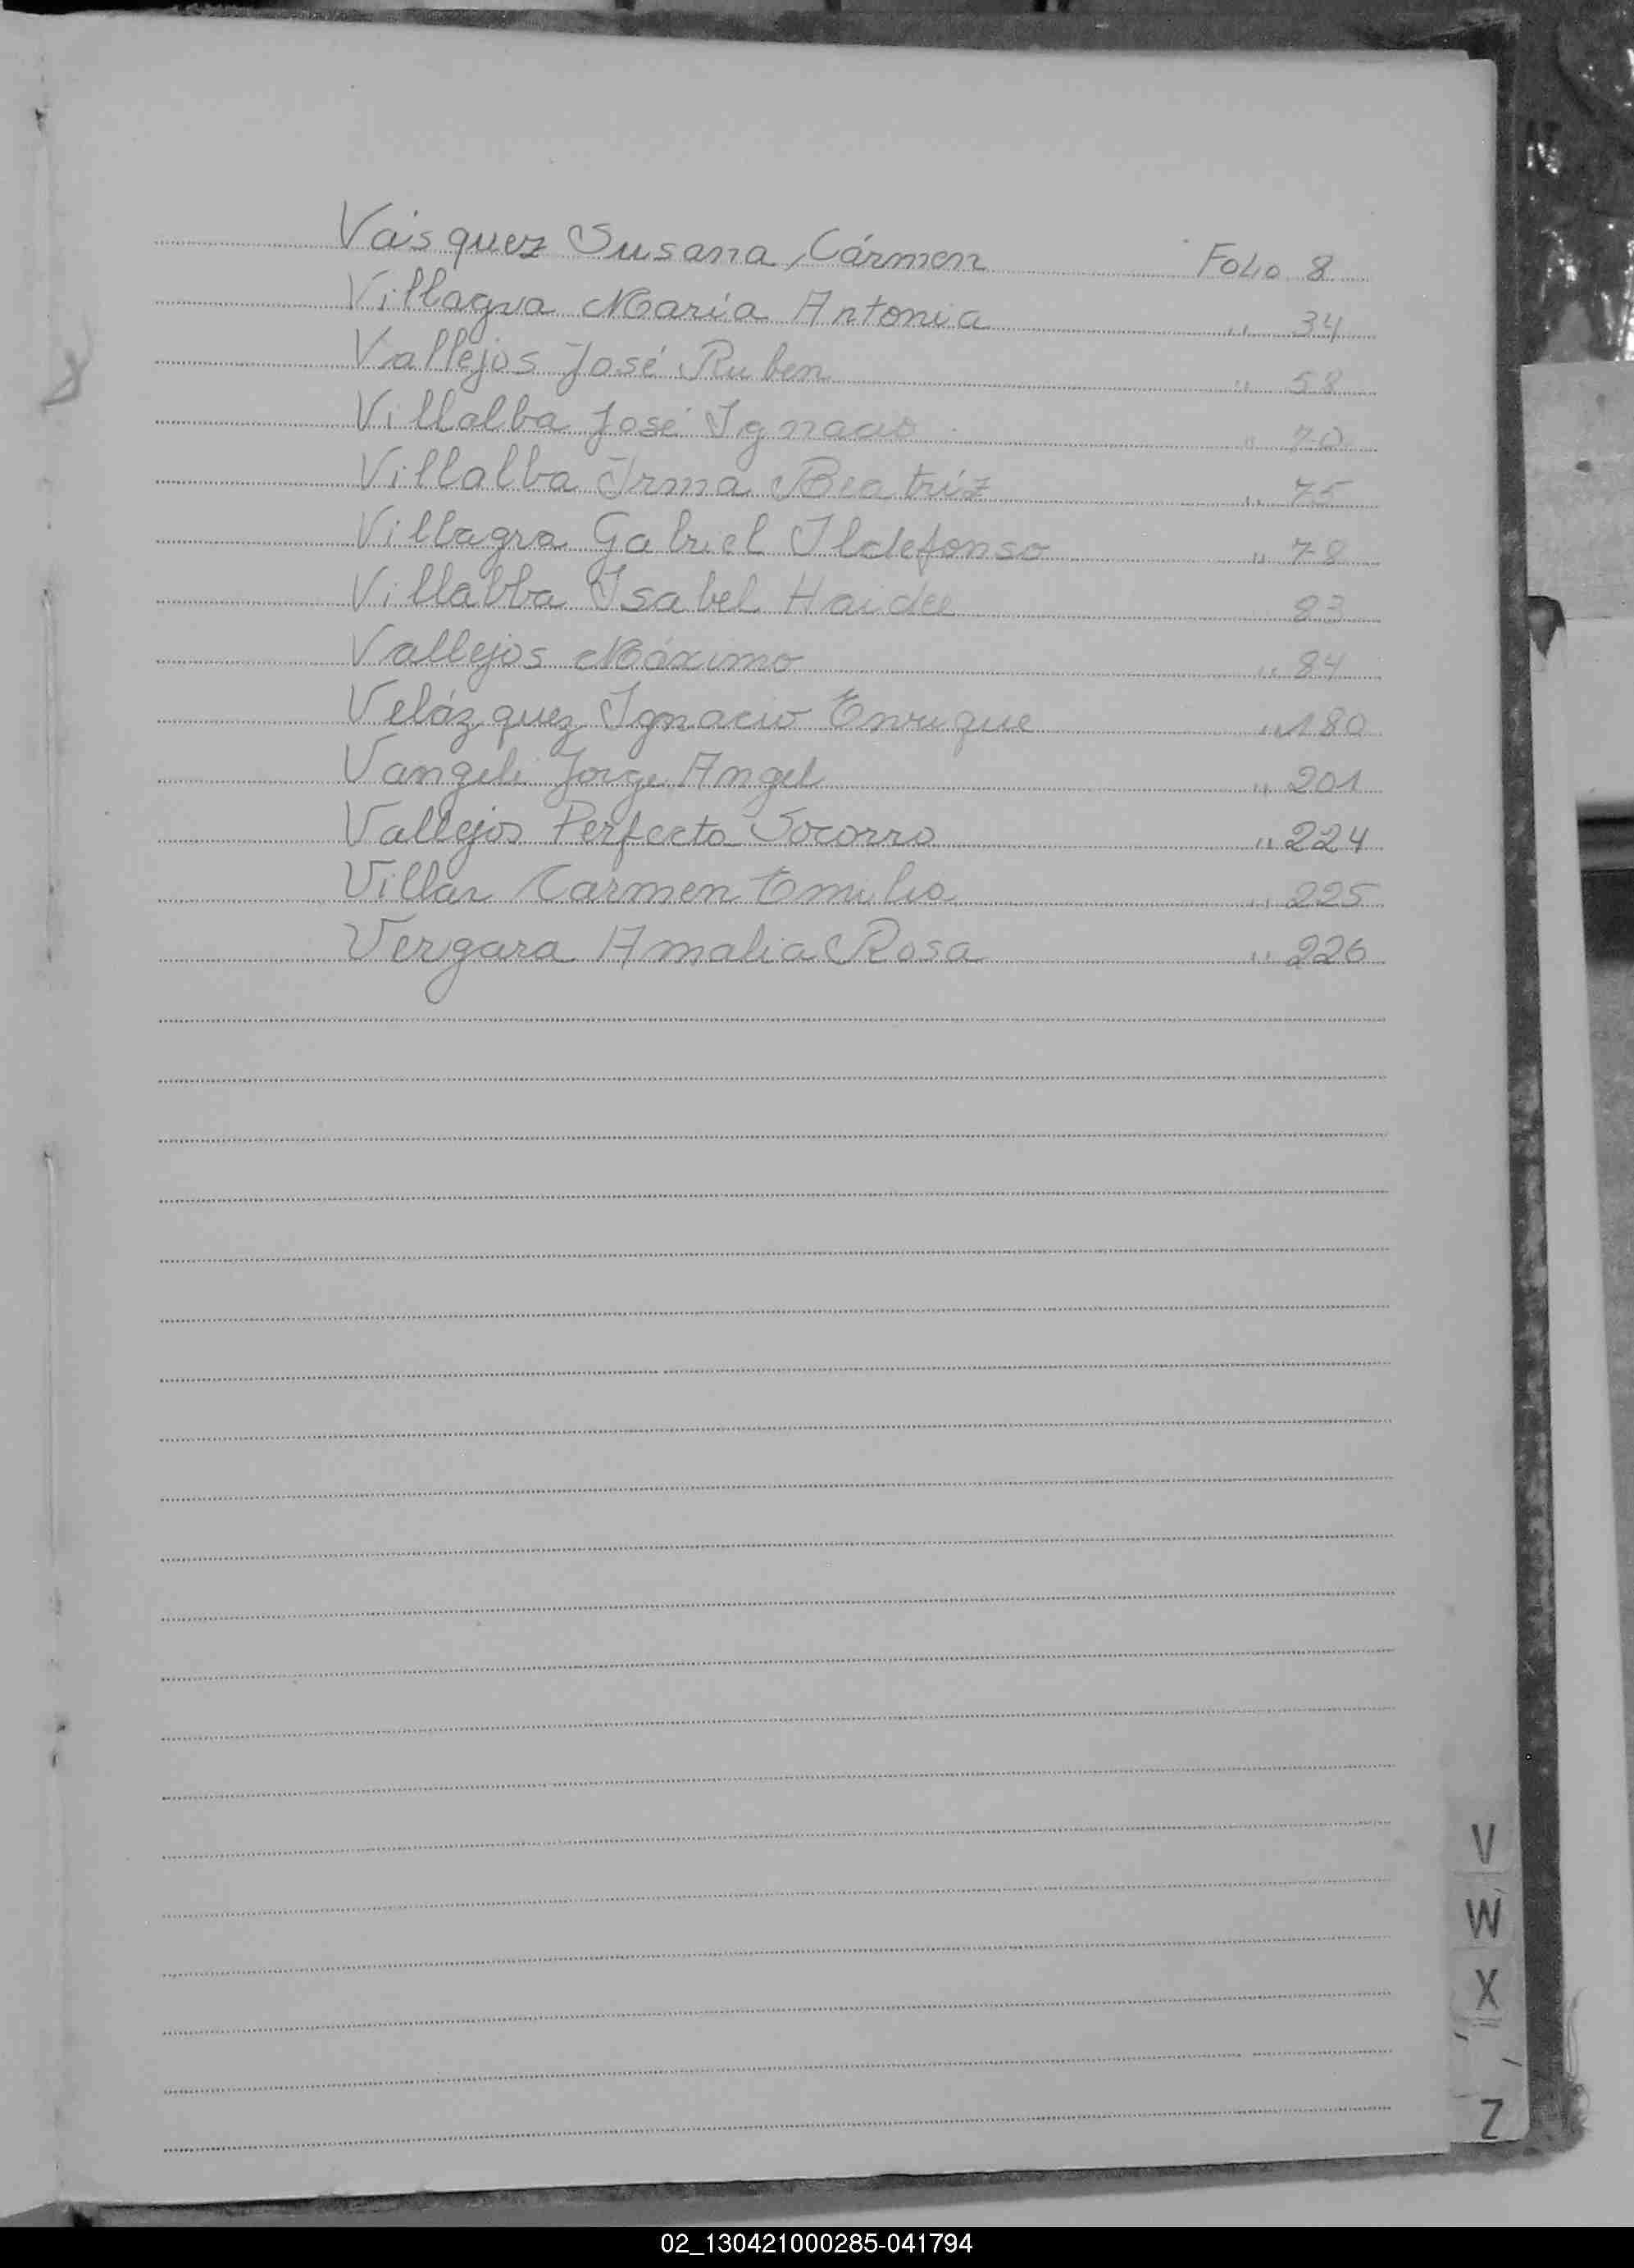 Vásquez Susana Cármen Folio 8
Villagra María Antonia " 34
Vallejos José Ruben " 58
Villalba José Ignacio " 70
Villalba Irma Beatriz " 75
Villagra Gabriel Ildefonso " 78
Villalba Isabel Haidée 83
Vallejos Máximo " 84
Velázquez Ignacio Enrique " 180
Vangeli Jorge Angel " 201
Vallejos Perfecto Socorro " 224
Villar Carmen Emilio " 225
Vergara Amalia Rosa " 226
V
W
X
Z
02_130421000285-041794